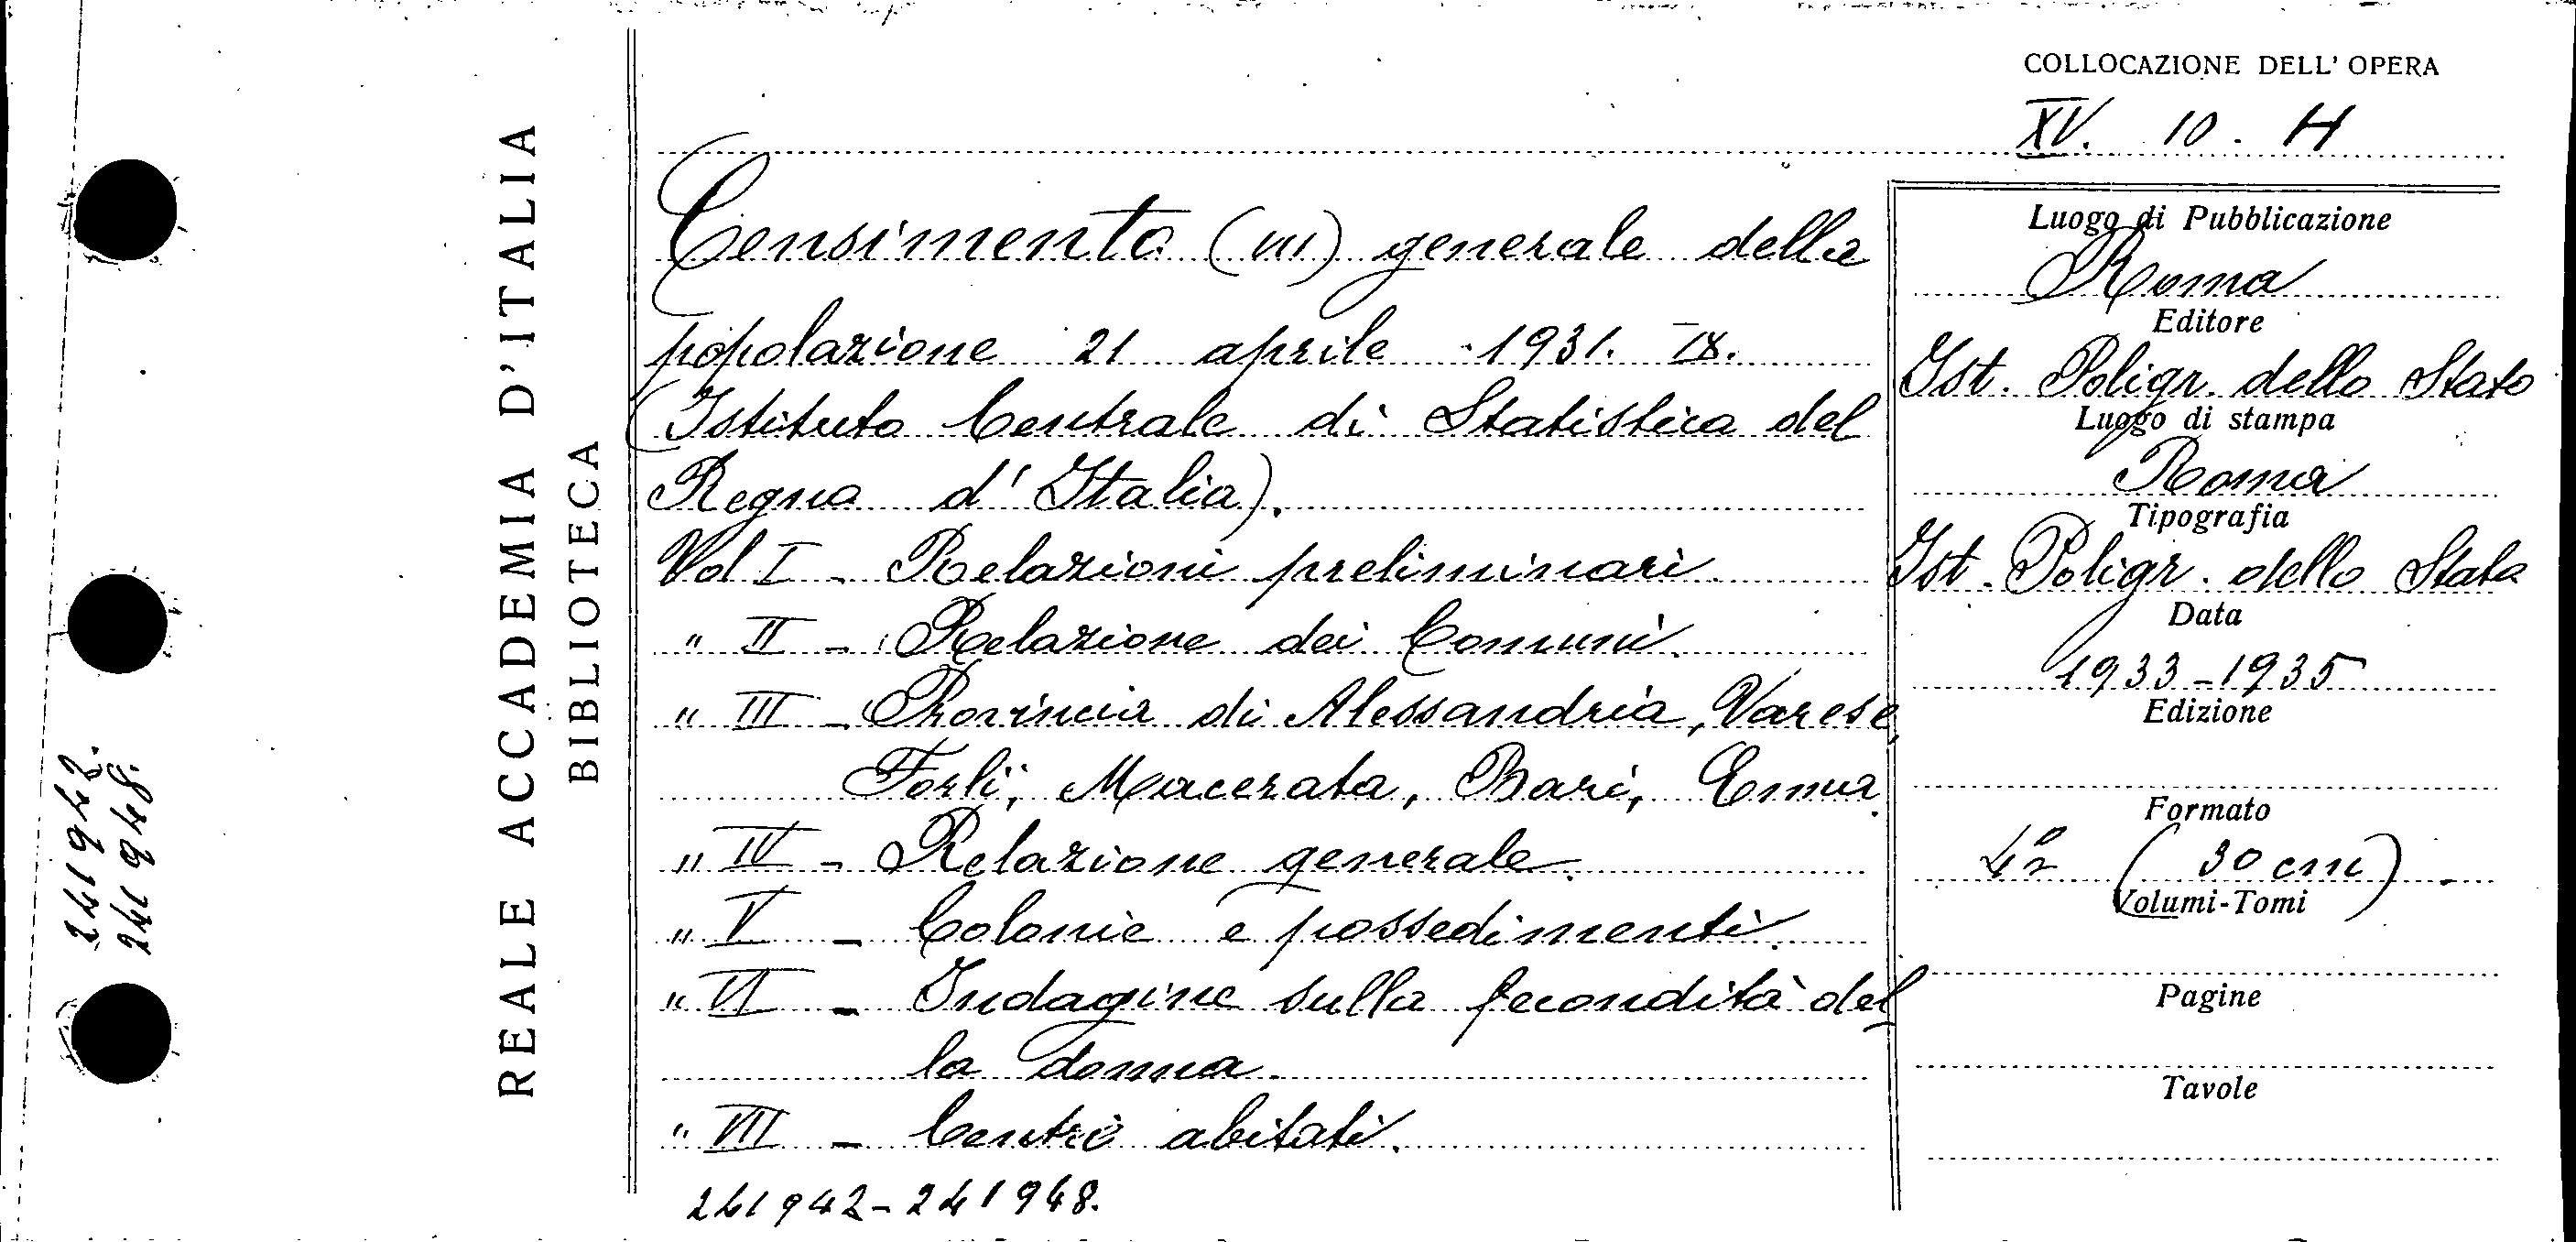 COLLOCAZIONE DELL' OPERA
XV. 10. H
REALE ACCADEMIA D'ITALIA
BIBLIOTECA
241942.
241948.
Censimento (VII) generale della
popolazione 21 aprile 1931. IX.
(Istituto Centrale di Statistica del
Regno d'Italia).
Vol I - Relazioni preliminari
" II - Relazione dei Comuni.
" III - Provincia di Alessandria, Varese,
Forlì, Macerata, Bari, Enna.
" IV - Relazione generale.
" V - Colonie e possedimenti.
" VI - Indagine sulla fecondità del-
la donna.
" VII - Centri abitati.
241942-241948.
Luogo di Pubblicazione
Roma
Editore
Ist. Poligr. dello Stato
Luogo di stampa
Roma
Tipografia
Ist. Poligr. dello Stato
Data
1933-1935
Edizione
Formato
4º (30 cm).
Volumi-Tomi
Pagine
Tavole